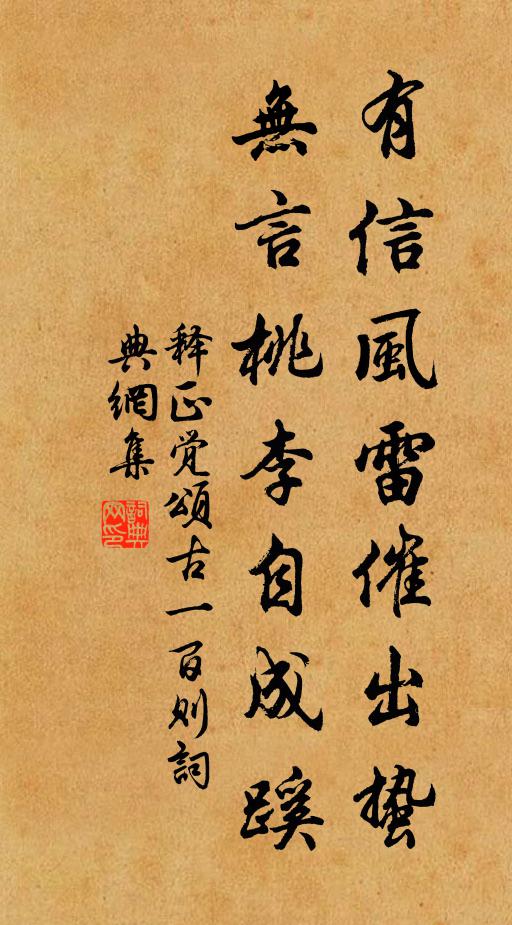 有信風雷催出蟄
無言桃李自成蹊
释正觉頌古一百则詞
典網集
詞典
网印